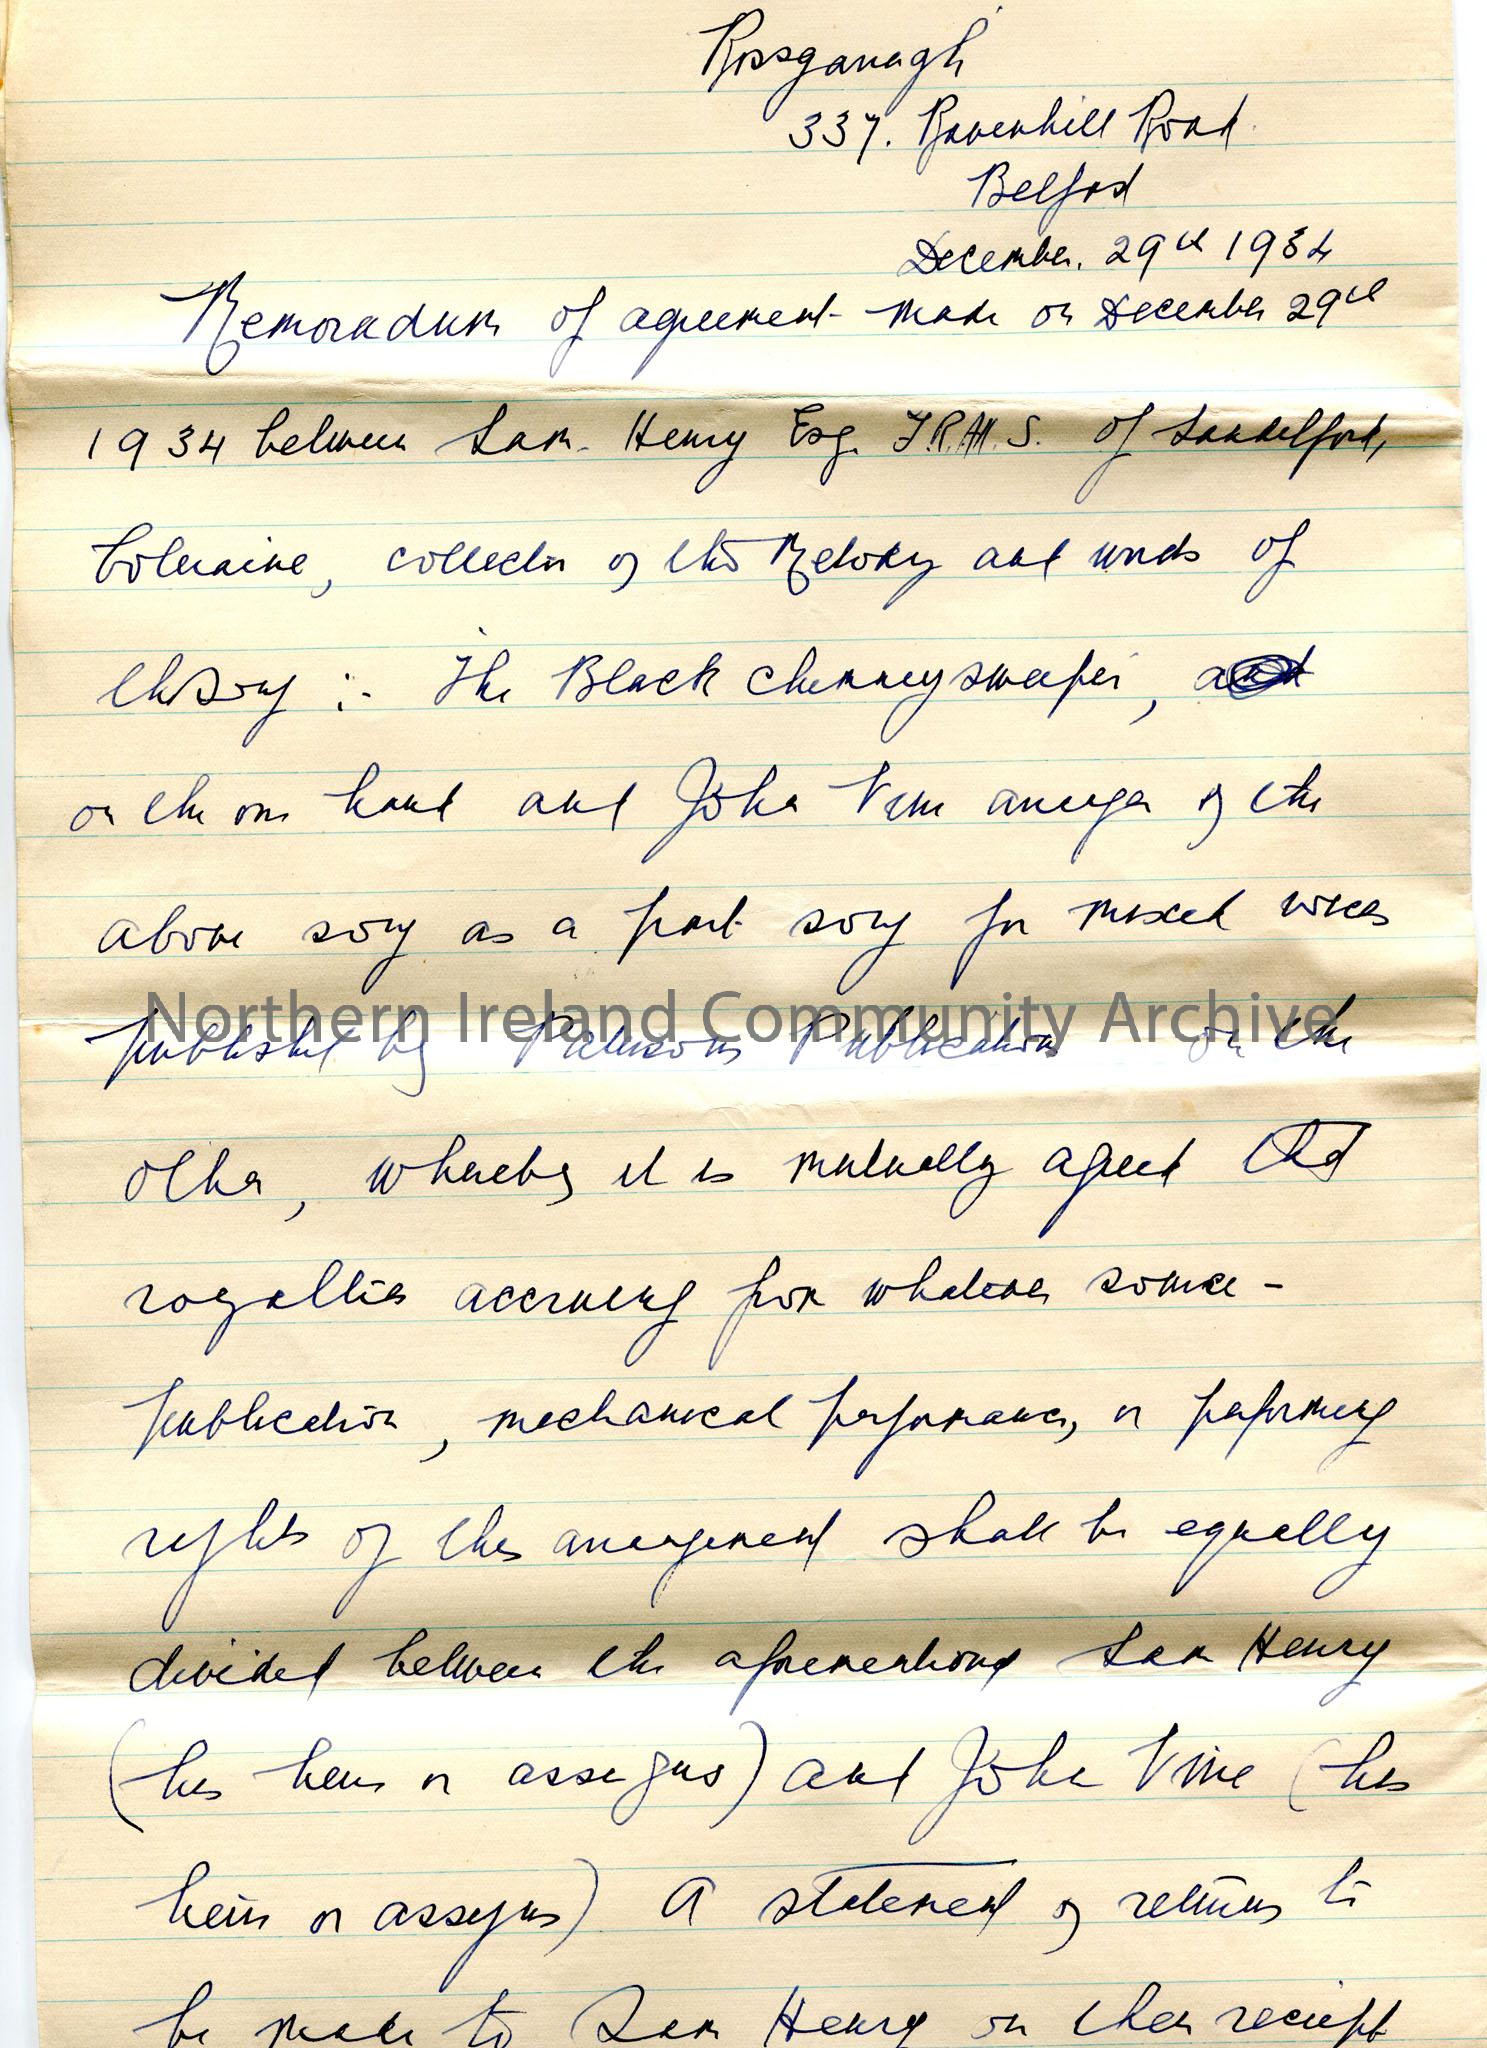 Rossganagh
337. Ravenhill Road
Belfast
December. 29th 1934
Memoradum of agreement made on December 29th
1934 between Sam. Henry Esq. F.R.A.M.S. of Sandelford,
Coleraine, collector of the Melody and words of
the song :- The Black chimneysweeper,
on the one hand and John Vine arranger of the
above song as a part song for mixed voices
Northern Ireland Community Archive
published by Publications on the
other, whereby it is mutually agreed that
royalties accruing from whatever source -
publication, mechanical performance, or performing
rights of this arrangement shall be equally
divided between the aforementioned Sam Henry
(his heirs or assigns) and John Vine (his
heirs or assigns) A statement of returns to
be made to Sam Henry on their receipt